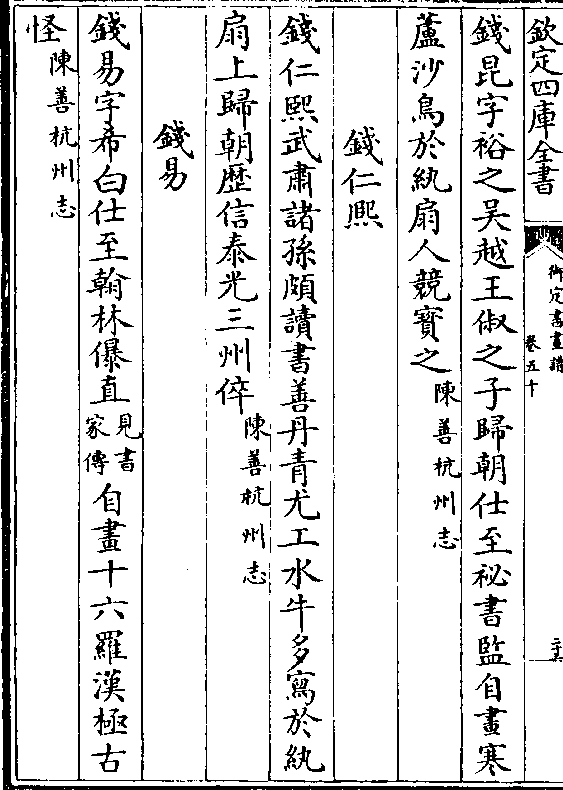 欽定四庫全書
御定書畫譜
卷五十
二十六
錢昆字裕之吳越王俶之子歸朝仕至祕書監自畫寒
蘆沙鳥於紈扇人競寳之陳善杭州志
錢仁熙
錢仁熙武肅諸孫頗讀書善丹青尤工水牛多寫於紈
扇上歸朝歴信泰光三州倅陳善杭州志
錢易
錢易字希白仕至翰林儤直見書家傳自畫十六羅漢極古
怪陳善杭州志